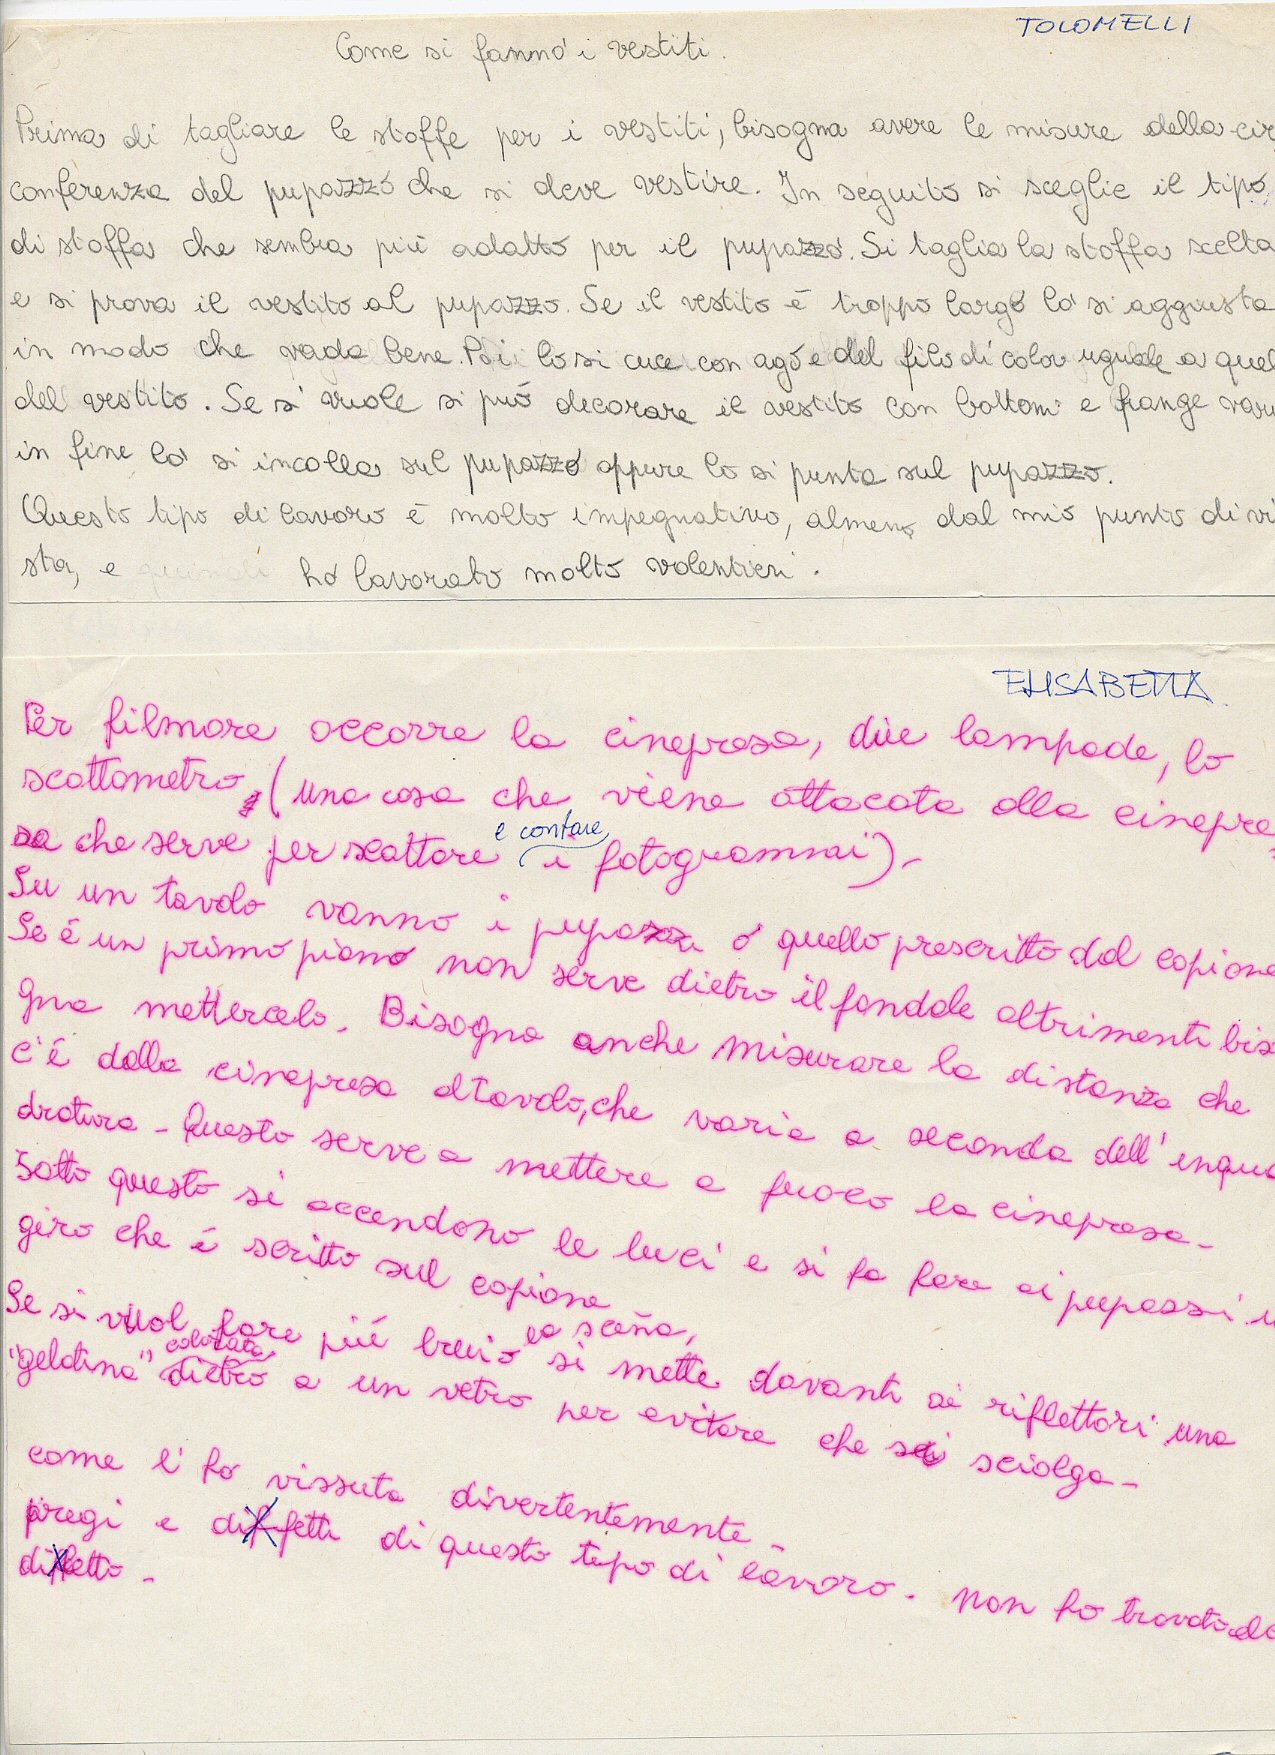 TOLOMELLI
Come si fanno i vestiti.
Prima di tagliare le stoffe per i vestiti, bisogna avere le misure della cir
conferenza del pupazzo che si deve vestire. In seguito si sceglie il tipo
di stoffa che sembra più adatto per il pupazzo. Si taglia la stoffa scelta
e si prova il vestito al pupazzo. Se il vestito è troppo largo lo si aggiusta
in modo che vada bene. Poi lo si cuce con ago e del filo di color uguale a quel
del vestito. Se si vuole si può decorare il vestito con bottoni e frange varie
in fine lo si incolla sul pupazzo oppure lo si punta sul pupazzo.
Questo tipo di lavoro è molto impegnativo, almeno dal mio punto di vi
sta, e ho lavorato molto volentieri.
ELISABETTA
Per filmare occorre la cinepresa, due lampade, lo
scattometro (una cosa che viene attacata alla cinepre
sa che serve per scattare e contare i fotogrammi).
Su un tavolo vanno i pupazzi o quello prescritto dal copione
Se é un primo piano non serve dietro il fondale altrimenti biso
gna mettercelo. Bisogna anche misurare la distanza che
c'é dalla cinepresa al tavolo, che varia a seconda dell'inqua
dratura - Questo serve a mettere a fuoco la cinepresa -
Fatto questo si accendono le luci e si fa fare ai pupazzi il
giro che é scritto sul copione
Se si vuol fare più breve la scena, si mette davanti ai riflettori una
"gelatina" colorata dietro a un vetro per evitare che si sciolga -
come l'ho vissuta divertentemente -
pregi e difetti di questo tipo di lavoro. non ho trovato
difetto -